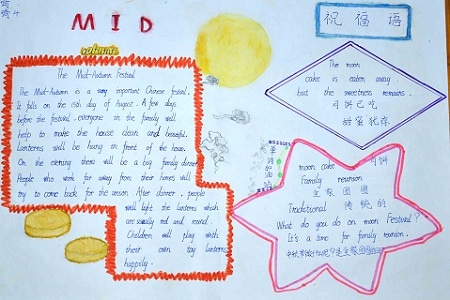 MID
autumn
祝福语
The Mid-Autumn Festival
The Mid-Autumn is a very important Chinese festival.
It falls on the 15th day of August. A few days
before the festival, everyone in the family will
help to make the house clean and beautiful.
Lanterns will be hung in front of the house.
On the evening there will be a big family dinner.
People who work far away from their homes will
try to come back for the union. After dinner, people
will light the lanterns which
are usually red and round.
Children will play with
their own toy lanterns
happily.
The moon
cake is eaten away.
but the sweetness remains.
月饼已吃
甜蜜犹存
moon cake 月饼
Family reunion
全家团圆
Traditional 传统的
What do you do on moon Festival?
It's a time for family reunion.